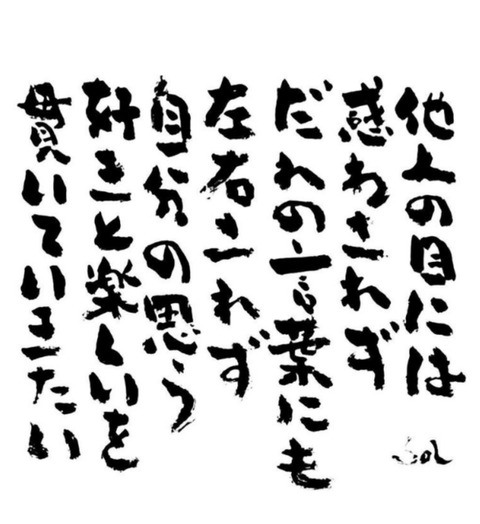 他人の目には
惑わされず
だれの言葉にも
左右されず
自分の思う
好きと楽しいを
貫いていきたい